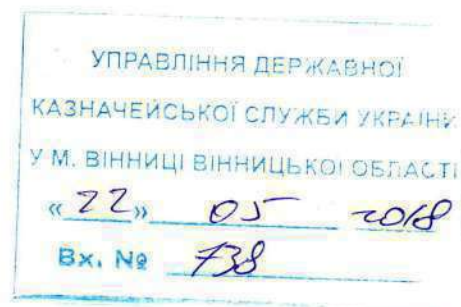 УПРАВЛІННЯ ДЕРЖАВНОЇ
КАЗНАЧЕЙСЬКОЇ СЛУЖБИ УКРАЇНИ
У М. ВІННИЦІ ВІННИЦЬКОЇ ОБЛАСТІ
«22» 05 2018
Вх. № 738